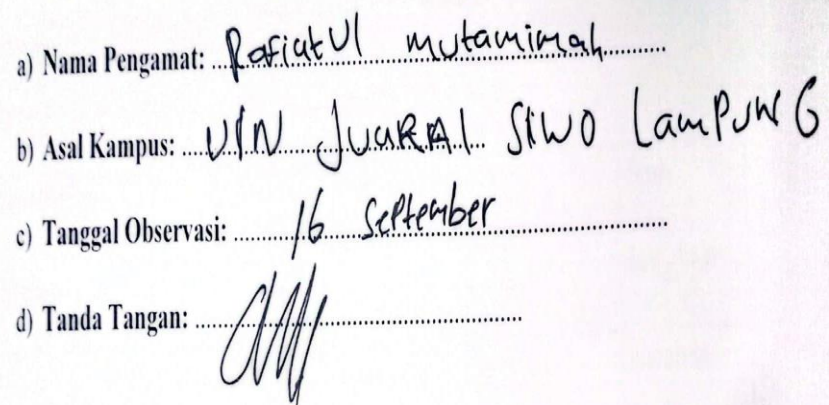 a) Nama Pengamat: Rofiatul mutamimah
b) Asal Kampus: UIN JURAI SIWO LamPUNG
c) Tanggal Observasi: 16 September
d) Tanda Tangan: